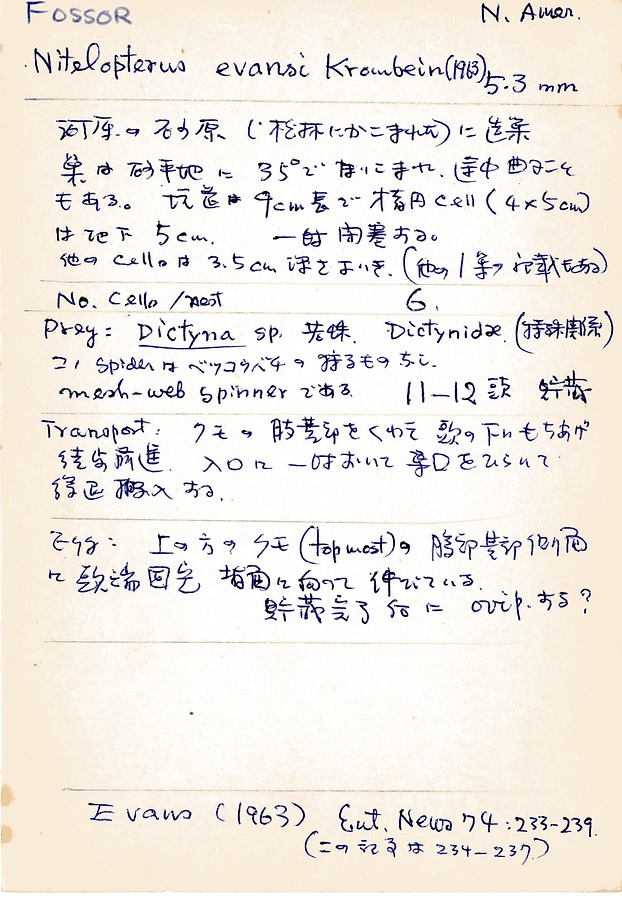 FOSSOR N. Amer.
Nitelopterus evansi Krombein (1963) 5.3 mm
河原の砂原 (松林にかこまれた) に造巣
巣は砂平地に 35°で なゝこまれ、途中曲ること
もある。坑道は 9cm長で 楕円 cell (4×5cm)
は地下 5cm. 一時閉塞する。
他の cells は 3.5cm 深さまいき. (他の1巣の記載もある)
No. Cells / nest 6.
Prey: Dictyna sp. 若蛛. Dictynidae. (特殊関係)
コノ spider はベッコウバチの狩るものなし.
mesh-web spinner である 11–12 頭 貯蔵
Transport: クモの 肢基部をくわえ 頭の下にもちあげ
後歩前進. 入口に 一時おいて 巣口をひらいて
後退搬入する.
Egg: 上の方のクモ (top most) の 腹部基部側面
に 頭端固定 背面に向って 伸びている.
貯蔵完了後に ovip. する?
Evans (1963) Ent. News 74 : 233–239.
(この記事は 234–237.)